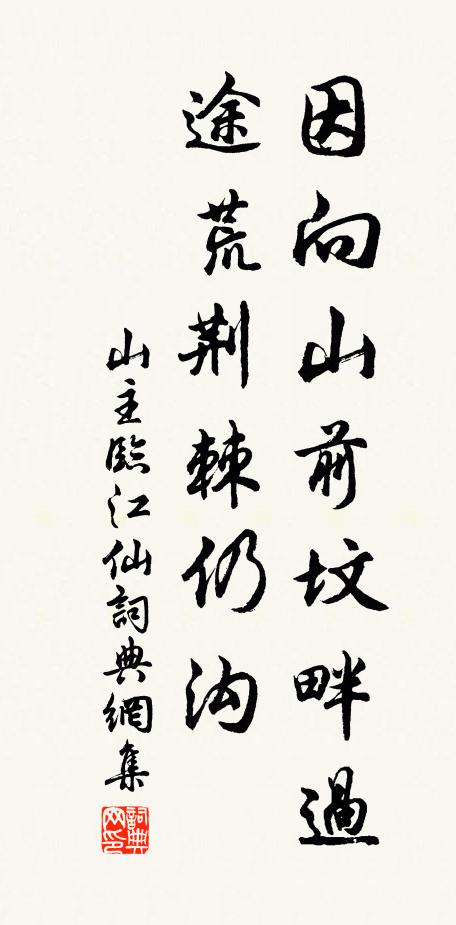 因向山前坟畔過
途荒荆棘仍沟
山主臨江仙詞典網集
詞典网印